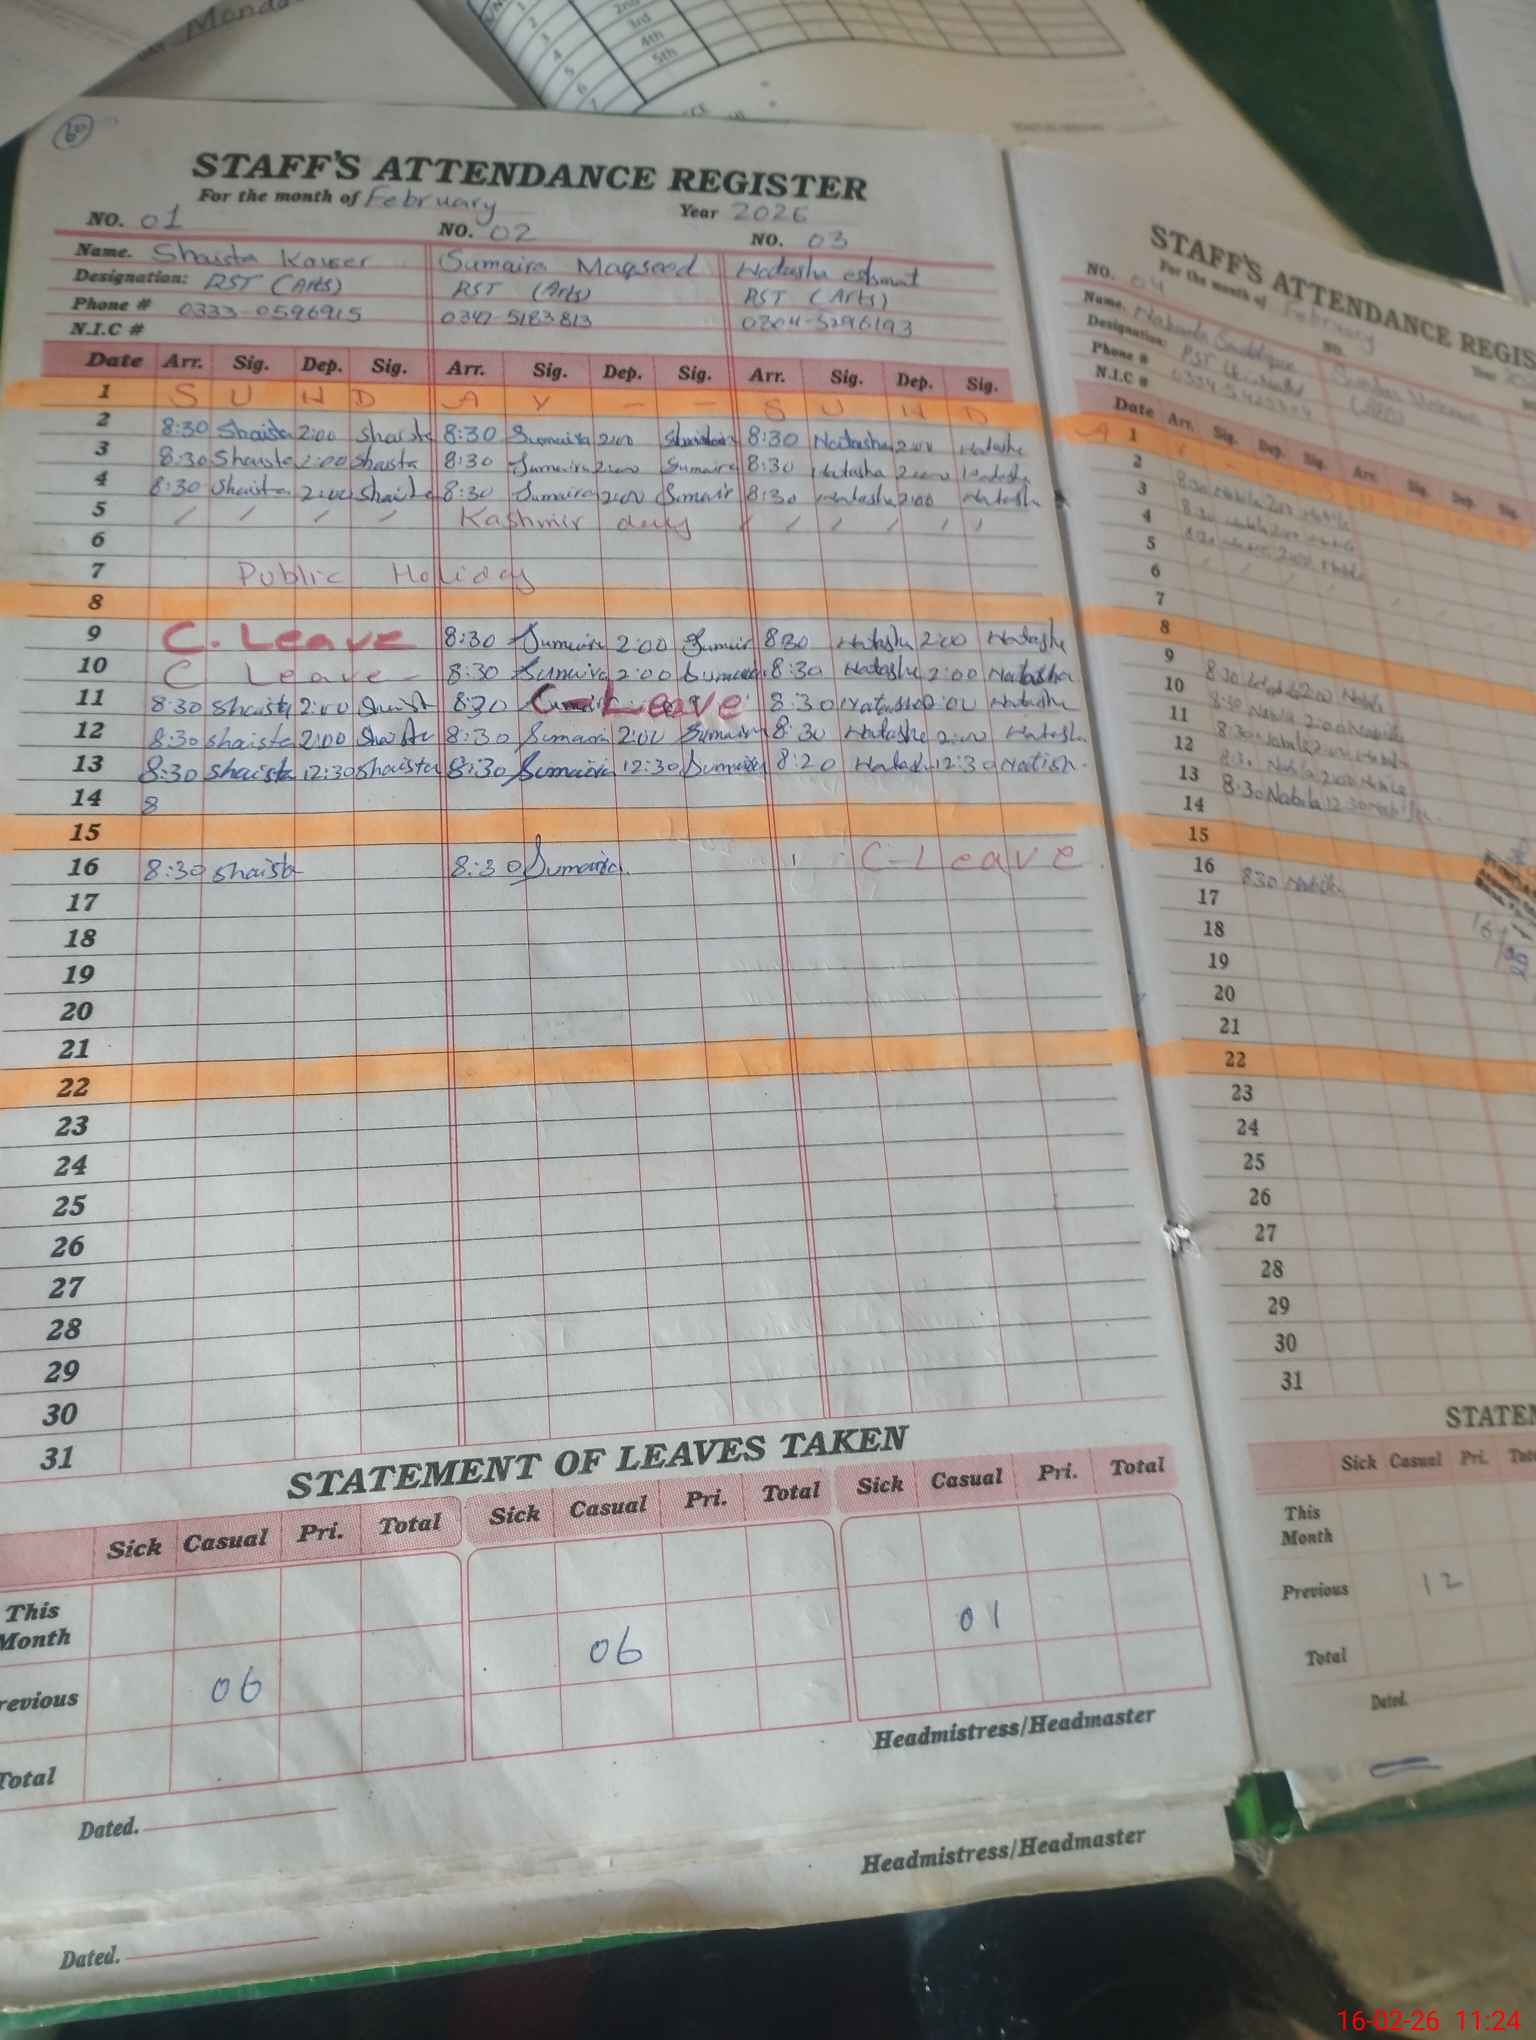 STAFF'S ATTENDANCE REGISTER
For the month of February Year 2026
NO. 01 NO. 02 NO. 03
Name. Shaista Kauser Sumaira Maqsood Natasha
Designation: RST (Arts) RST (Arts) RST (Arts)
Phone # 0333-0596915 0347-5183813 0304-5296193
N.I.C #
Date Arr. Sig. Dep. Sig. Arr. Sig. Dep. Sig. Arr. Sig. Dep. Sig.
1 S U N D A Y - - S U N D
2 8:30 Shaista 2:00 Shaista 8:30 Sumaira 2:00 8:30 Natasha 2:00 Natasha
3 8:30 Shaista 2:00 Shaista 8:30 Sumaira 2:00 Sumaira 8:30 Natasha 2:00 Natasha
4 8:30 Shaista 2:00 Shaista 8:30 Sumaira 2:00 Sumair 8:30 Natasha 2:00 Natasha
5 Kashmir day
6
7 Public Holiday
8
9 C. Leave 8:30 Sumaira 2:00 Sumair 8:30 Natasha 2:00 Natasha
10 C Leave - 8:30 Sumaira 2:00 Sumaira 8:30 Natasha 2:00 Natasha
11 8:30 Shaista 2:00 Shaist 8:30 C-Leave 8:30 Natasha 2:00 Natasha
12 8:30 Shaista 2:00 Shaista 8:30 Sumaira 2:00 Sumaira 8:30 Natasha 2:00 Natasha
13 8:30 Shaista 12:30 Shaista 8:30 Sumaira 12:30 Sumaira 8:20 Natash 12:30 Natish
14 8
15
16 8:30 Shaista 8:30 Sumaira C-Leave
17
18
19
20
21
22
23
24
25
26
27
28
29
30
31
STATEMENT OF LEAVES TAKEN
Sick Casual Pri. Total Sick Casual Pri. Total Sick Casual Pri. Total
This Month
revious 06 06 01
Total
Headmistress/Headmaster
Dated.
Headmistress/Headmaster
Dated.
STAFF'S ATTENDANCE REGIS
For the month of February
NO. 04 NO.
Name.
Designation:
Phone #
N.I.C #
Date Arr. Sig. Dep. Sig. Arr. Sig. Dep. Sig.
1
2 8:30 Nabila 2:00
3 8:30 Nabila 2:00
4 8:30 2:00
5
6
7
8
9 8:30 2:00 Nabila
10 8:30 Nabila 2:00 Nabila
11 8:30 Nabila 2:00 Nabila
12 8:30 Nabila 2:00 Nabila
13 8:30 Nabila 12:30
14
15
16 8:30 Nabila
17
18
19
20
21
22
23
24
25
26
27
28
29
30
31
STATEM
Sick Casual Pri.
This Month
Previous 12
Total
Dated.
2nd
3rd
4th
5th
1
2
3
4
5
6
7
16-02-26 11:24